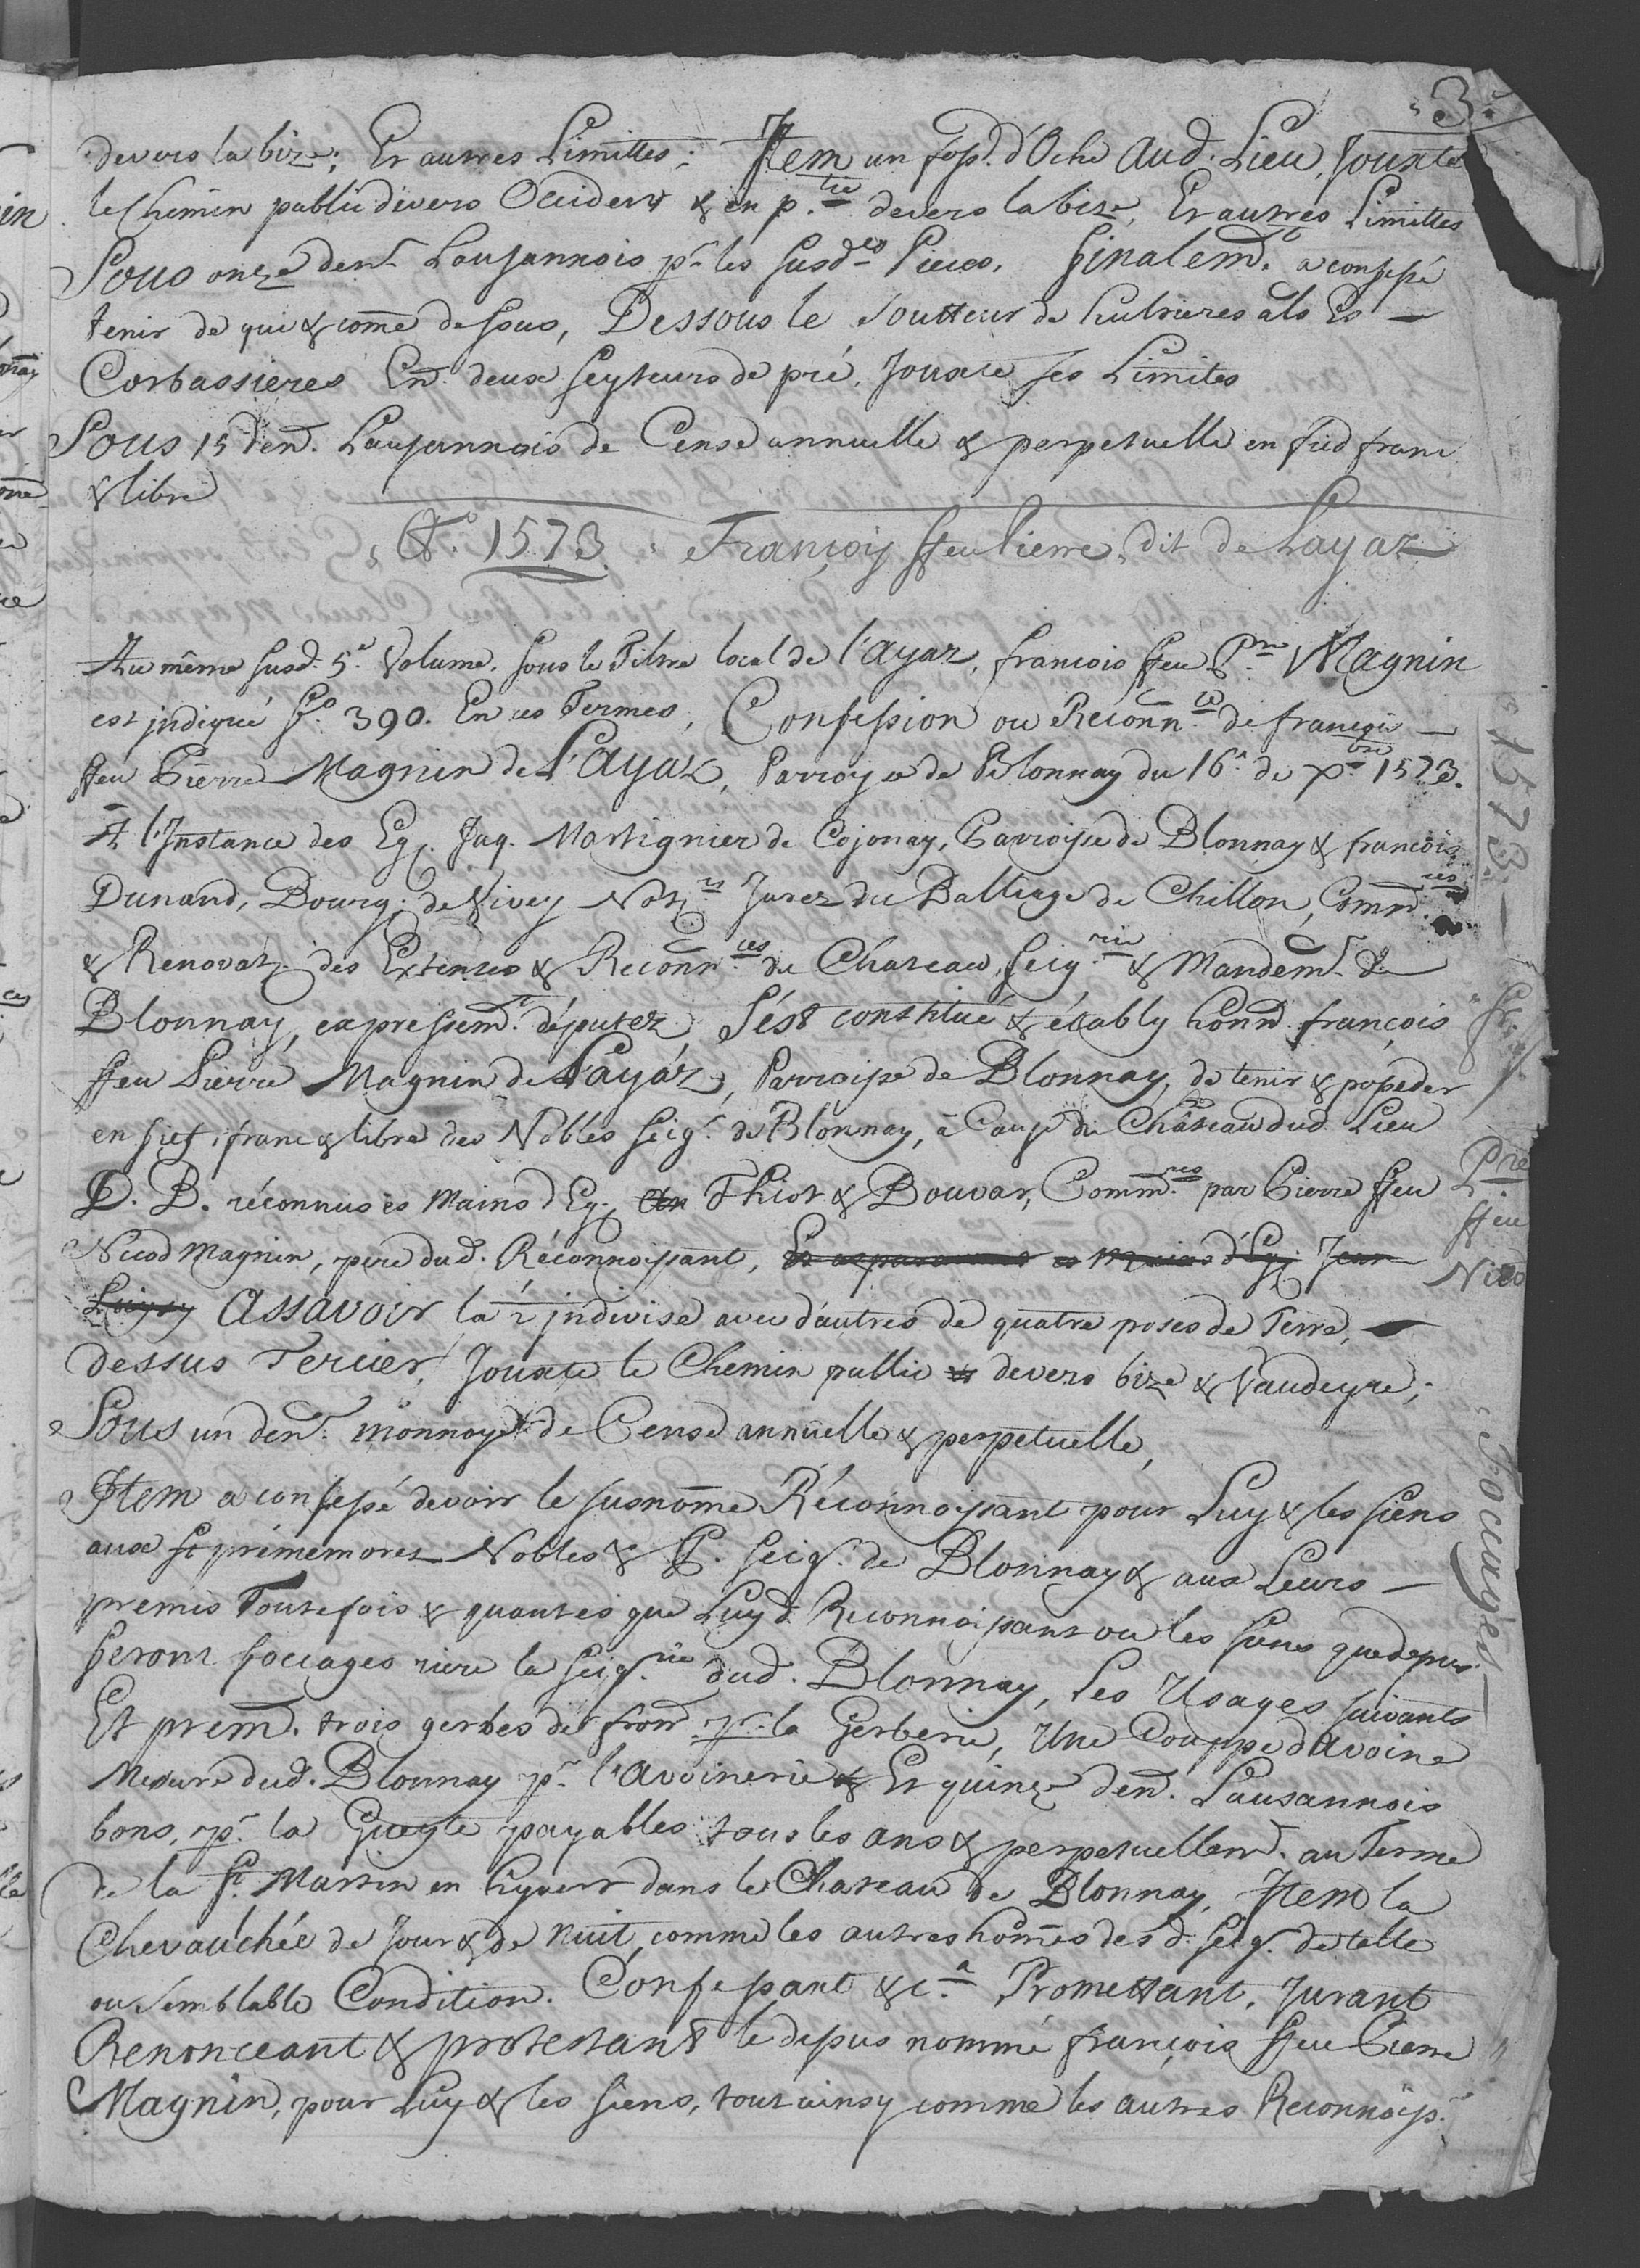 3.e
devers la bize; Et autres Limittes; Item un fossr. d'Oche Aud. Lieu, Jouxte
le Chemin public devers Occident & en p.tie devers la bize, Et autres Limittes
Sous onze denr. Lausannois pr. les susd.es Pieces. Finalem.t a confessé
tenir de qui & come dessous, Dessous le Soutteur de als Es —
Corbassieres En. deux seyteurs de pré, Jouxte ses Limites
Sous 15 den. Lausannois de Cense annuelle & perpetuelle en fied franc
& libre
1573. François ffeu Pierre, dit de Layaz
Au même susd. 5.e Volume. sous le Tiltre local de l'Ayaz, francois ffeu P.rre Magnin
est indiqué f.o 390. En ces Termes, Confession ou Réconn.ce de françois —
ffeu Pierre Magnin de L'Ayaz, Parroisse de Blonnay du 16.e de X.bre 1573.
A l'Instance des Eg. Jaq. Martignier de Cojonay, Parroisse de Blonnay & francois
Dunand, Bourg. de Vivey Not.rs Jurez du Balliage de Chillon, Comm.res
& Renovat. des Extentes & Reconn.ces du Chateau, seig.rie & Mandem.t de
Blonnay, expressem.t députez, S'ést constitué & établÿ honn. françois
ffeu Pierre Magnin de Layaz, Parroisse de Blonnay, de tenir & posseder
en fief franc & libre des Nobles seigr. de Blonnay, à Cause du Château dud. Lieu
D. B. réconnus ès Mains d'Eg. Thiot & Bouvar, Comm.res par Pierre ffeu
Nicod Magnin, pere dud. Réconnoissant, Es mains d'Eg. Jean
Assavoir la ½ indivise avec d'autres de quatre poses de Terre, —
dessus Tercier, Jouxte le Chemin public devers bize & Vaudeyre;
Sous un denr. monnoye de Cense annuelle & perpetuelle,
Item a confessé devoir le susnomé Réconnoissant pour Luy & les siens
aux st prémemorez Nobles & P. seigr. de Blonnay & aux Leurs —
premis Toutefois & quantes que Luy d. Reconnoissant ou les siens que depuis
seront focages riere la seigr.rie dud. Blonnay, Les Usages suivants
Et prem. trois gerbes de from. pr. la Gerberie, Une Couppe d'Avoine
Mesure dud. Blonnay pr. l'avoinerie & Et quinze den. Lausannois
bons, pr. la Gueyte payables tous les ans & perpetuellem.t au Terme
de la St. Martin en hyvert dans le Chateau de Blonnay, Item la
Chevauchée de Jour & de nuit, comme les autres homes des d. seigr. de telle
ou semblable Condition. Confessant &c.a Promettant, Jurant
Renonceant & protestant le dessus nommé françois ffeu Pierre
Magnin, pour Luy & les siens, tout ainsy comme les autres Reconnoiss.
1573.
P.rre
ffeu
Nico
Focages